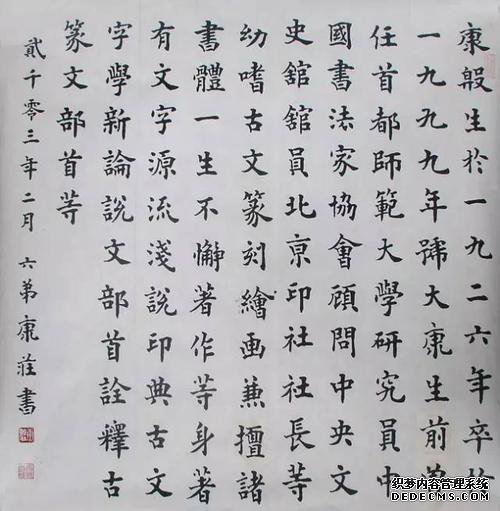 康殷生於一九二六年卒於
一九九九年號大康生前曾
任首都師範大學研究員中
國書法家協會顧問中央文
史舘舘員北亰印社社長等
幼嗜古文篆刻繪画兼擅諸
書體一生不懈著作等身著
有文字源流淺說印典古文
字學新論說文部首詮釋古
篆文部首等
貳千零三年二月 六弟康莊書
织梦内容管理系统
DEDECMS.COM